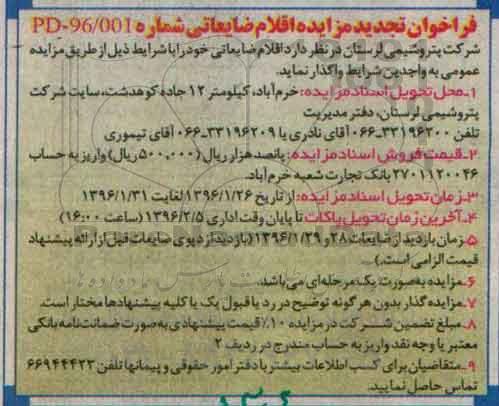 فراخوان تجدید مزایده اقلام ضایعاتی شماره PD-96/001
شرکت پتروشیمی لرستان در نظر دارد اقلام ضایعاتی خود را با شرایط ذیل از طریق مزایده
عمومی به واجدین شرایط واگذار نماید.
۱ـ محل تحویل اسناد مزایده: خرم‌آباد، کیلومتر ۱۲ جاده کوهدشت، سایت شرکت
پتروشیمی لرستان، دفتر مدیریت
تلفن ۳۳۱۹۶۲۰۰ـ۰۶۶ آقای نادری یا ۳۳۱۹۶۲۰۹ـ۰۶۶ آقای تیموری
۲ـ قیمت فروش اسناد مزایده: پانصد هزار ریال (۵۰۰,۰۰۰ ریال) واریز به حساب
۲۷۰۱۱۲۰۰۴۶ بانک تجارت شعبه خرم‌آباد.
۳ـ زمان تحویل اسناد مزایده: از تاریخ ۱۳۹۶/۱/۲۶ لغایت ۱۳۹۶/۱/۳۱
۴ـ آخرین زمان تحویل پاکات تا پایان وقت اداری ۱۳۹۶/۲/۵ (ساعت ۱۶:۰۰)
۵ـ زمان بازدید از ضایعات ۲۸ و ۱۳۹۶/۱/۲۹ (بازدید از دپوی ضایعات قبل از ارائه پیشنهاد
قیمت الزامی است.)
۶ـ مزایده به صورت یک مرحله‌ای می‌باشد.
۷ـ مزایده گذار بدون هر گونه توضیح در رد یا قبول یک یا کلیه پیشنهادها مختار است.
۸ـ مبلغ تضمین شرکت در مزایده ۱۰٪ قیمت پیشنهادی به صورت ضمانت‌نامه بانکی
معتبر یا وجه نقد واریز به حساب مندرج در ردیف ۲
۹ـ متقاضیان برای کسب اطلاعات بیشتر با دفتر امور حقوقی و پیمانها تلفن ۶۶۹۴۴۴۲۳
تماس حاصل نمایید.